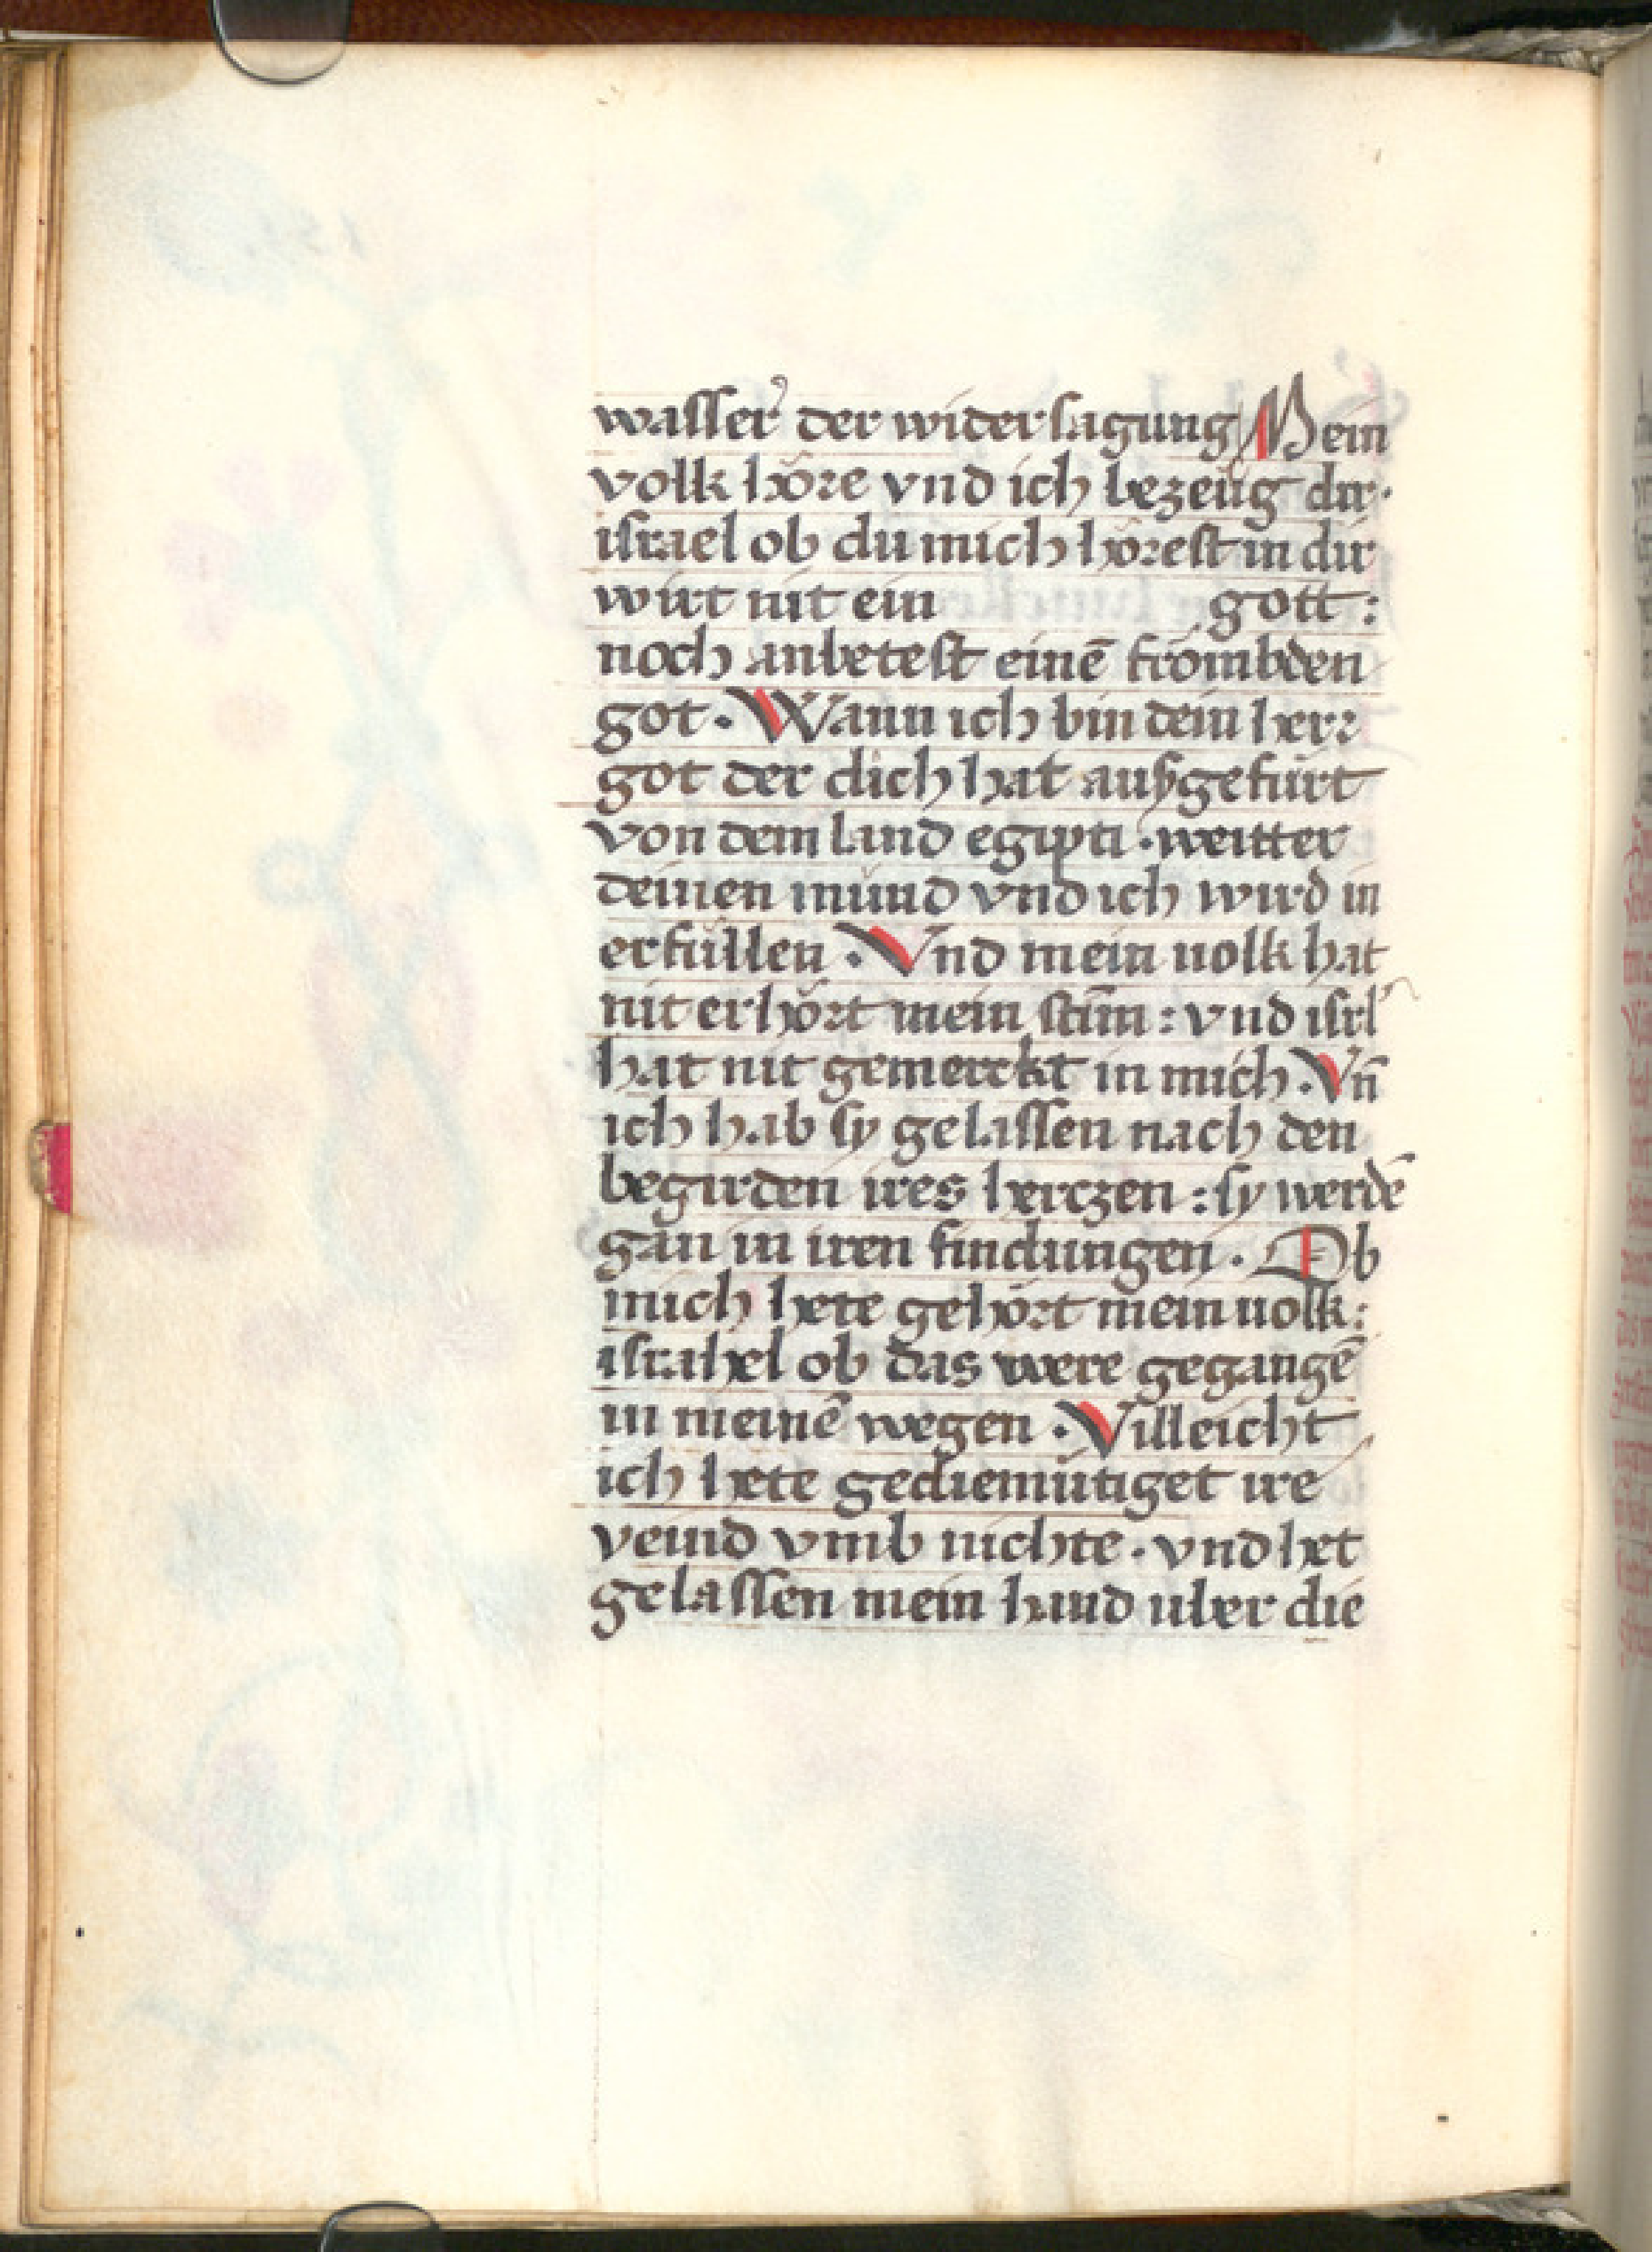 wasser der widersagung Mein
volk höre vnd ich bezeug dir·
israel ob du mich hörest in dir
wirt nit ein gott :
noch anbetest einē frömbden
got · Wann ich bin dein herr
got der dich hat auſzgefürt
von dem land egipti · weitter
deinen mund vnd ich wird in
erfüllen · Vnd mein uolk hat
nit erhört mein stīm : vnd isrl'
hat nit gemerckt in mich · Vn̄
ich hab sy gelassen nach den
begirden ires herczen : sy werdē
gan in iren findungen · Ob
mich hete gehört mein uolk :
israhel ob das were gegangē
in meinē wegen · Villeicht
ich hete gediemütiget ire
veind vmb nichte · vnd het
gelassen mein hand uber die